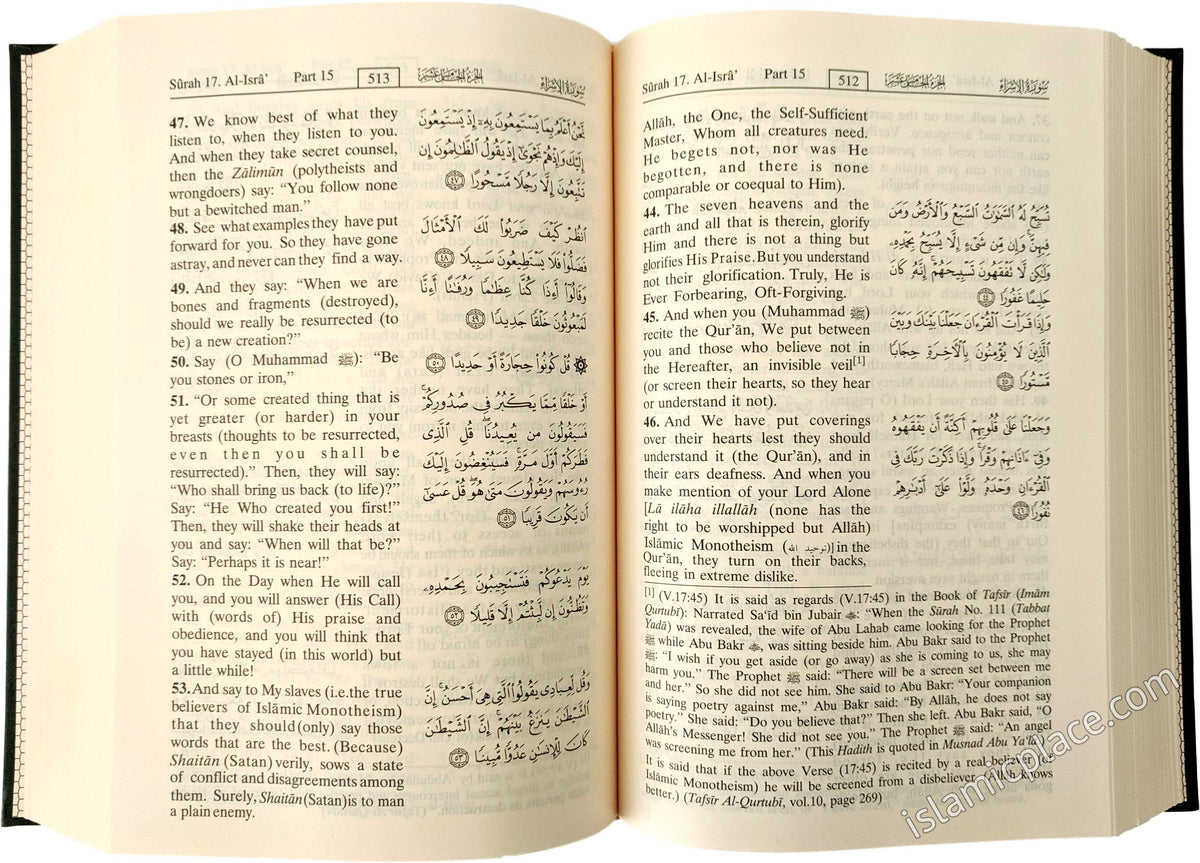 Sûrah 17. Al-Isrâ’ Part 15 512 الجزء الخامس عشر سورة الإسراء
Allāh, the One, the Self-Sufficient
Master, Whom all creatures need.
He begets not, nor was He
begotten, and there is none
comparable or coequal to Him).
44. The seven heavens and the
earth and all that is therein, glorify
Him and there is not a thing but
glorifies His Praise. But you understand
not their glorification. Truly, He is
Ever Forbearing, Oft-Forgiving.
45. And when you (Muhammad ﷺ)
recite the Qur’ān, We put between
you and those who believe not in
the Hereafter, an invisible veil[1]
(or screen their hearts, so they hear
or understand it not).
46. And We have put coverings
over their hearts lest they should
understand it (the Qur’ān), and in
their ears deafness. And when you
make mention of your Lord Alone
[Lā ilāha illallāh (none has the
right to be worshipped but Allāh)
Islāmic Monotheism (توحيد الله)] in the
Qur’ān, they turn on their backs,
fleeing in extreme dislike.
تُسَبِّحُ لَهُ ٱلسَّمَٰوَٰتُ ٱلسَّبْعُ وَٱلْأَرْضُ وَمَن
فِيهِنَّ ۚ وَإِن مِّن شَىْءٍ إِلَّا يُسَبِّحُ بِحَمْدِهِۦ
وَلَٰكِن لَّا تَفْقَهُونَ تَسْبِيحَهُمْ ۗ إِنَّهُۥ كَانَ
حَلِيمًا غَفُورًا ﴿٤٤﴾
وَإِذَا قَرَأْتَ ٱلْقُرْءَانَ جَعَلْنَا بَيْنَكَ وَبَيْنَ
ٱلَّذِينَ لَا يُؤْمِنُونَ بِٱلْءَاخِرَةِ حِجَابًا
مَّسْتُورًا ﴿٤٥﴾
وَجَعَلْنَا عَلَىٰ قُلُوبِهِمْ أَكِنَّةً أَن يَفْقَهُوهُ
وَفِىٓ ءَاذَانِهِمْ وَقْرًا ۚ وَإِذَا ذَكَرْتَ رَبَّكَ فِى
ٱلْقُرْءَانِ وَحْدَهُۥ وَلَّوْا۟ عَلَىٰٓ أَدْبَٰرِهِمْ
نُفُورًا ﴿٤٦﴾
[1] (V.17:45) It is said as regards (V.17:45) in the Book of Tafsīr (Imām
Qurtubī): Narrated Sa‘īd bin Jubair: “When the Sūrah No. 111 (Tabbat
Yadā) was revealed, the wife of Abu Lahab came looking for the Prophet
ﷺ while Abu Bakr, was sitting beside him. Abu Bakr said to the Prophet
ﷺ: “I wish if you get aside (or go away) as she is coming to us, she may
harm you.” The Prophet ﷺ said: “There will be a screen set between me
and her.” So she did not see him. She said to Abu Bakr: “Your companion
is saying poetry against me,” Abu Bakr said: “By Allāh, he does not say
poetry.” She said: “Do you believe that?” Then she left. Abu Bakr said, “O
Allāh’s Messenger! She did not see you.” The Prophet ﷺ said: “An angel
was screening me from her.” (This Hadith is quoted in Musnad Abu Ya‘la).
It is said that if the above Verse (17:45) is recited by a real believer (of
Islāmic Monotheism) he will be screened from a disbeliever. (Allāh knows
better.) (Tafsīr Al-Qurtubī, vol.10, page 269)
Sûrah 17. Al-Isrâ’ Part 15 513 الجزء الخامس عشر سورة الإسراء
47. We know best of what they
listen to, when they listen to you.
And when they take secret counsel,
then the Zālimūn (polytheists and
wrongdoers) say: “You follow none
but a bewitched man.”
48. See what examples they have put
forward for you. So they have gone
astray, and never can they find a way.
49. And they say: “When we are
bones and fragments (destroyed),
should we really be resurrected (to
be) a new creation?”
50. Say (O Muhammad ﷺ): “Be
you stones or iron,”
51. “Or some created thing that is
yet greater (or harder) in your
breasts (thoughts to be resurrected,
even then you shall be
resurrected).” Then, they will say:
“Who shall bring us back (to life)?”
Say: “He Who created you first!”
Then, they will shake their heads at
you and say: “When will that be?”
Say: “Perhaps it is near!”
52. On the Day when He will call
you, and you will answer (His Call)
with (words of) His praise and
obedience, and you will think that
you have stayed (in this world) but
a little while!
53. And say to My slaves (i.e. the true
believers of Islāmic Monotheism)
that they should (only) say those
words that are the best. (Because)
Shaitān (Satan) verily, sows a state
of conflict and disagreements among
them. Surely, Shaitān (Satan) is to man
a plain enemy.
نَّحْنُ أَعْلَمُ بِمَا يَسْتَمِعُونَ بِهِۦٓ إِذْ يَسْتَمِعُونَ
إِلَيْكَ وَإِذْ هُمْ نَجْوَىٰٓ إِذْ يَقُولُ ٱلظَّٰلِمُونَ إِن
تَتَّبِعُونَ إِلَّا رَجُلًا مَّسْحُورًا ﴿٤٧﴾
ٱنظُرْ كَيْفَ ضَرَبُوا۟ لَكَ ٱلْأَمْثَالَ
فَضَلُّوا۟ فَلَا يَسْتَطِيعُونَ سَبِيلًا ﴿٤٨﴾
وَقَالُوٓا۟ أَءِذَا كُنَّا عِظَٰمًا وَرُفَٰتًا أَءِنَّا
لَمَبْعُوثُونَ خَلْقًا جَدِيدًا ﴿٤٩﴾
۞ قُلْ كُونُوا۟ حِجَارَةً أَوْ حَدِيدًا ﴿٥٠﴾
أَوْ خَلْقًا مِّمَّا يَكْبُرُ فِى صُدُورِكُمْ ۚ
فَسَيَقُولُونَ مَن يُعِيدُنَا ۖ قُلِ ٱلَّذِى
فَطَرَكُمْ أَوَّلَ مَرَّةٍ ۚ فَسَيُنْغِضُونَ إِلَيْكَ
رُءُوسَهُمْ وَيَقُولُونَ مَتَىٰ هُوَ ۖ قُلْ عَسَىٰٓ
أَن يَكُونَ قَرِيبًا ﴿٥١﴾
يَوْمَ يَدْعُوكُمْ فَتَسْتَجِيبُونَ بِحَمْدِهِۦ
وَتَظُنُّونَ إِن لَّبِثْتُمْ إِلَّا قَلِيلًا ﴿٥٢﴾
وَقُل لِّعِبَادِى يَقُولُوا۟ ٱلَّتِى هِىَ أَحْسَنُ ۚ إِنَّ
ٱلشَّيْطَٰنَ يَنزَغُ بَيْنَهُمْ ۚ إِنَّ ٱلشَّيْطَٰنَ
كَانَ لِلْإِنسَٰنِ عَدُوًّا مُّبِينًا ﴿٥٣﴾
islamicplace.com